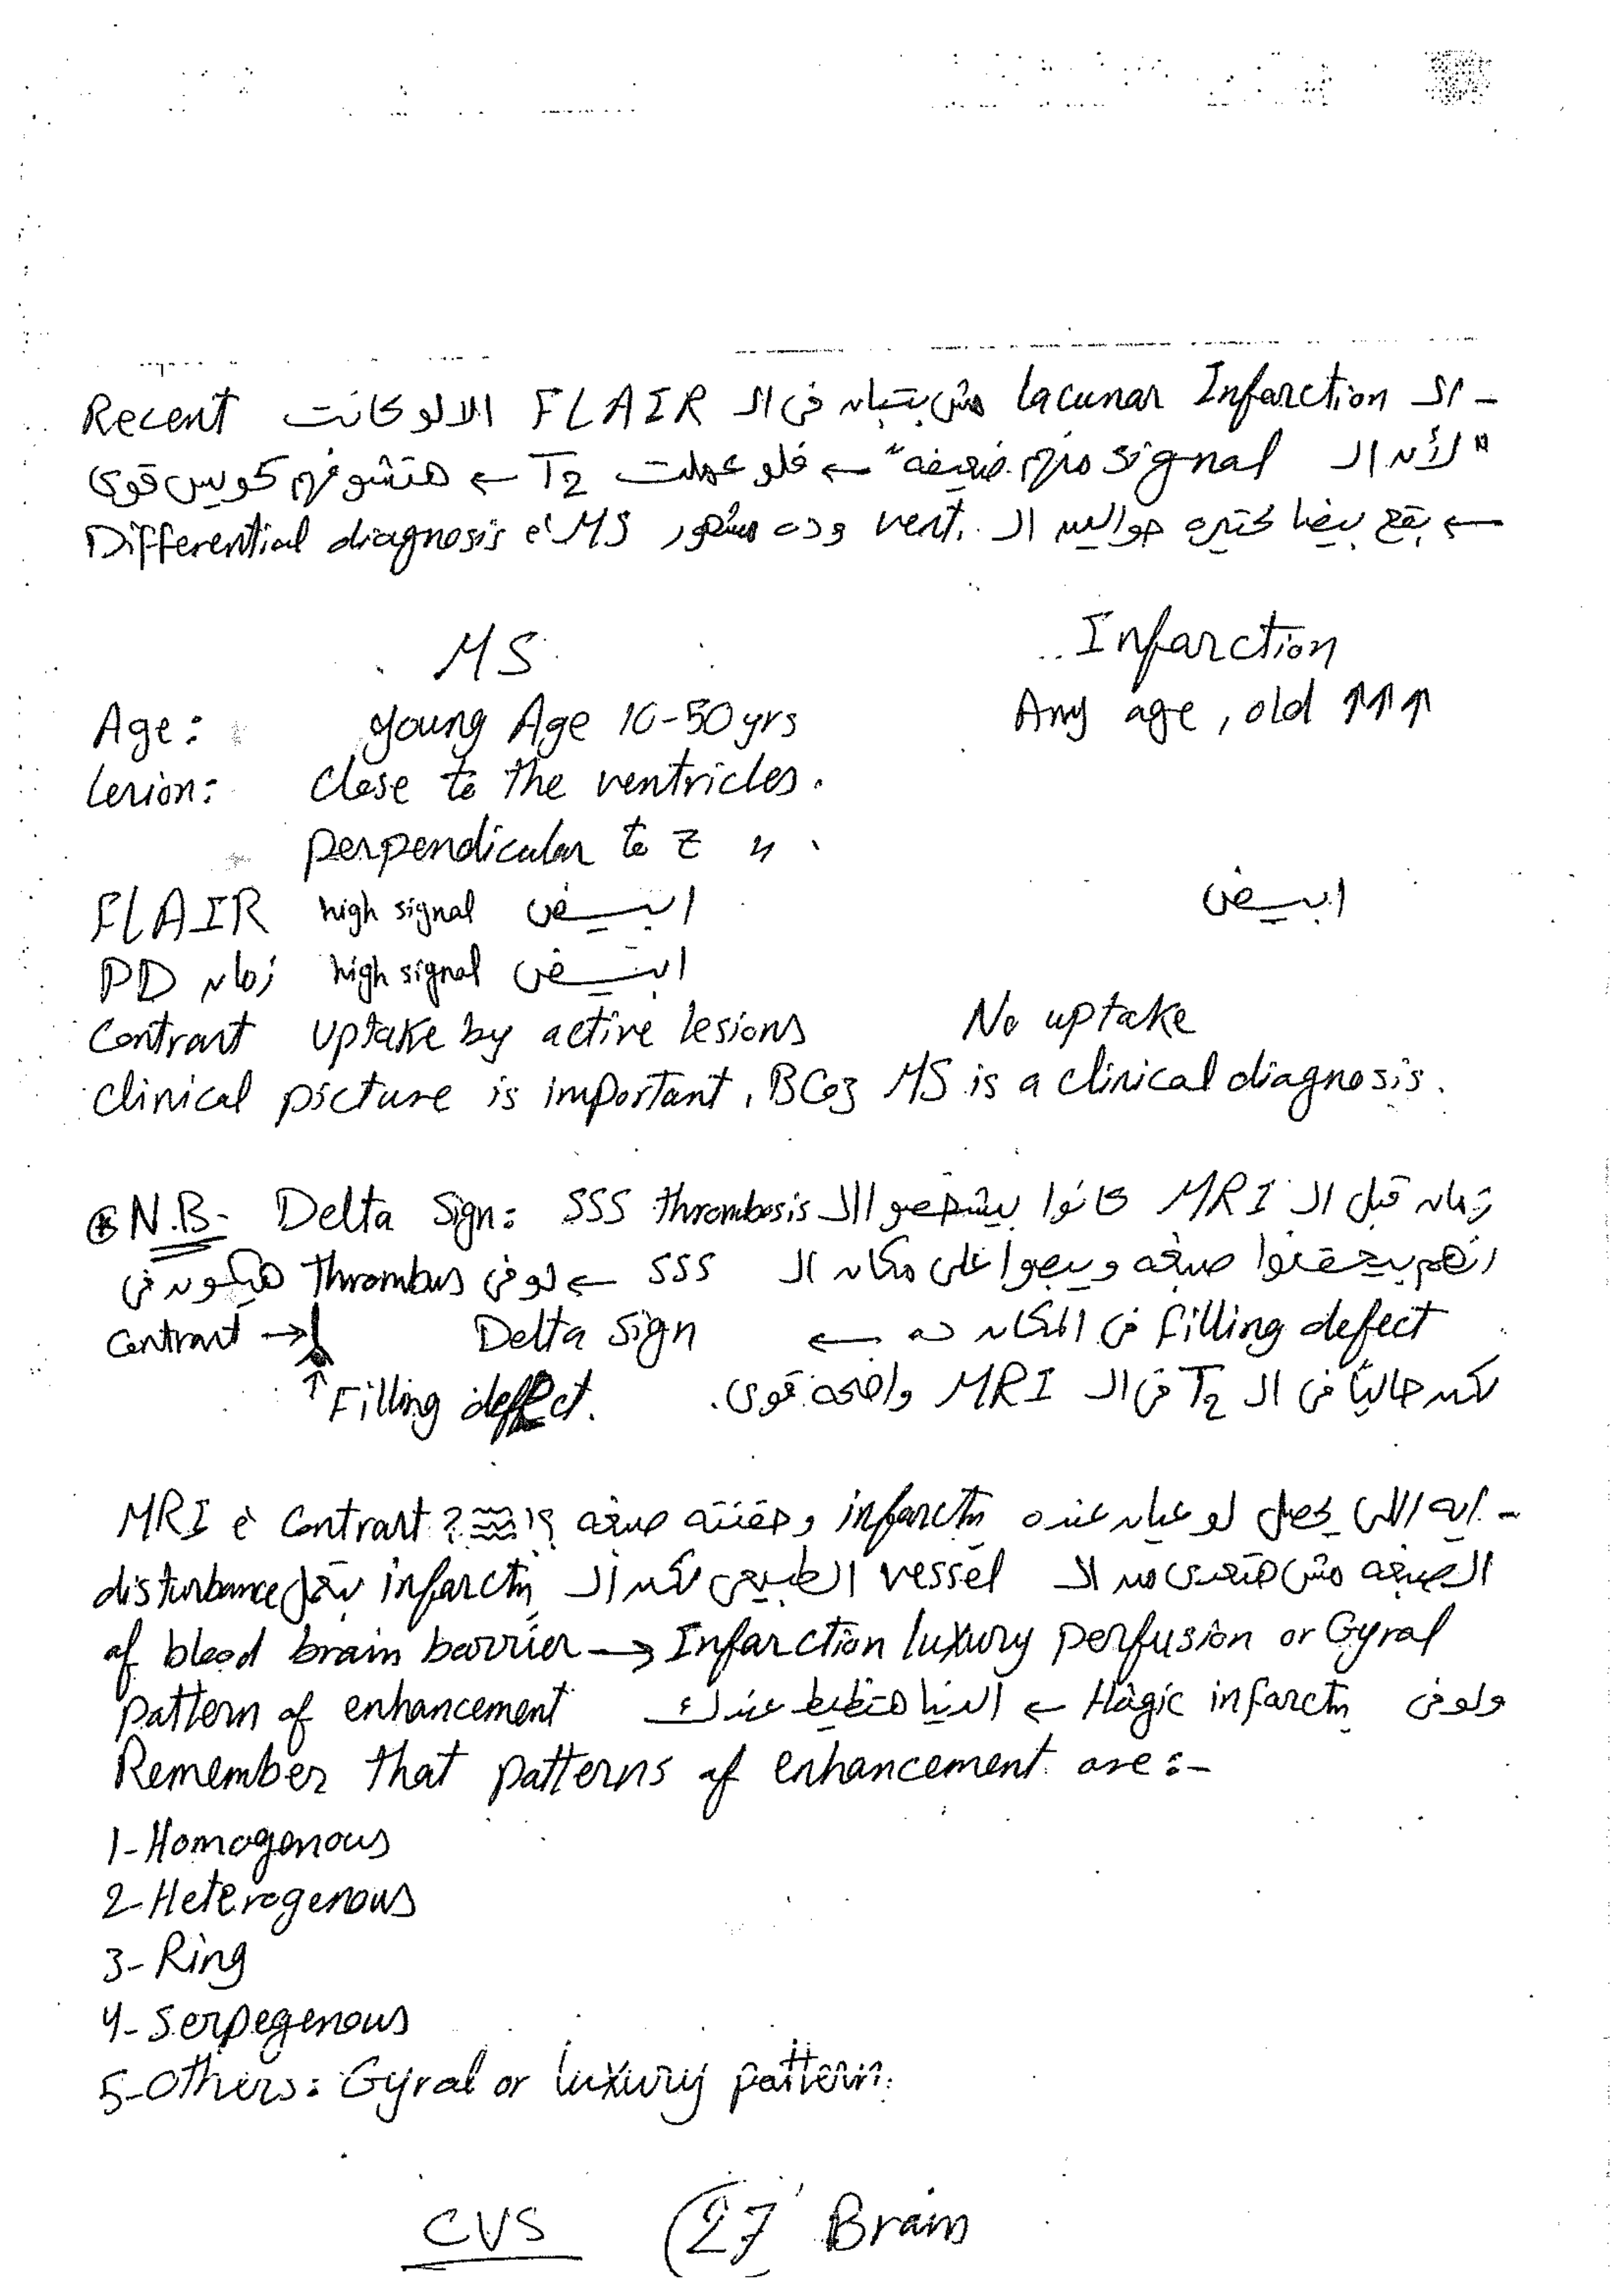 - الـ lacunar Infarction مش بتبان فى الـ FLAIR الا لو كانت Recent
"لأن الـ signal منهم ضعيفه" ← فلو عملت T2 ← هتشوفهم كويس قوى
← بقع بيضا كتيره حوالين الـ vent. وده مشهور MS è Differential diagnosis
MS Infarction
Age: young Age 10-50 yrs Any age, old ↑↑↑
Lesion: Close to the ventricles.
perpendicular to z 〃 .
FLAIR high signal ابيض ابيض
PD زمان high signal ابيض
Contrast uptake by active lesions No uptake
clinical picture is important, BCoz MS is a clinical diagnosis.
⊛ N.B- Delta Sign: زمان قبل الـ MRI كانوا بيشخصوا الـ SSS thrombosis
انهم بيحقنوا صبغه ويبصوا على مكان الـ SSS ← لو فى thrombus هيكون فى
filling defect فى المكان ده ← Delta Sign
Contrast →
↑ Filling defect.
لكن حالياً فى الـ T2 فى الـ MRI واضحه قوى.
- ايه اللى يحصل لو عيان عنده infarctn وحقنته صبغه ؟! MRI è Contrast ?
الصبغه مش هتعدى من الـ vessel الطبيعى لكن الـ infarctn بتعمل disturbance
of blood brain barrier → Infarction luxury perfusion or Gyral
pattern of enhancement ولو فى Hagic infarctn ← الدنيا هتظيط عندك
Remember that patterns of enhancement are :-
1- Homogenous
2- Heterogenous
3- Ring
4- Serpegenous
5- Others: Gyral or luxury pattern.
CVS (27 Brain